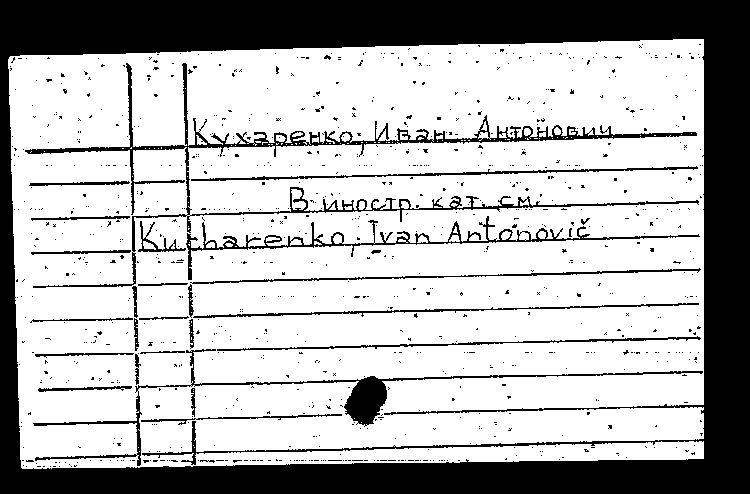 Кухаренко, Иван Антонович
В иностр. кат. см.
Kucharenko, Ivan Antonovič